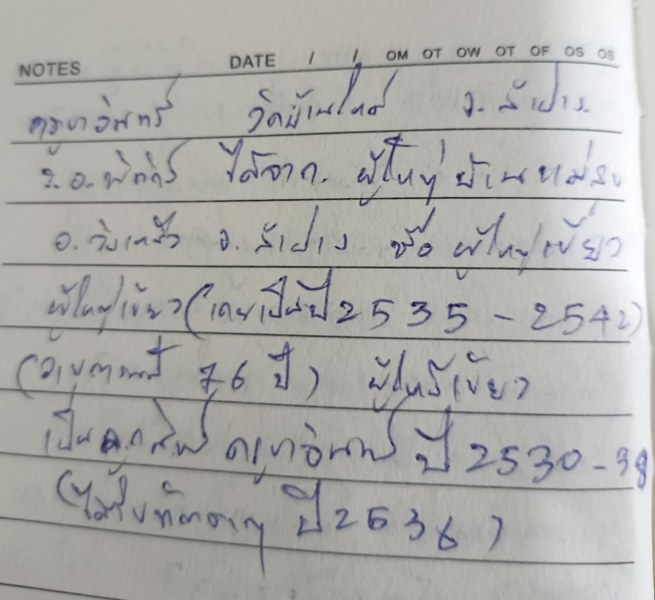 NOTES DATE / / OM OT OW OT OF OS OS
ครูบาอินทร์ วัดบ้านใหม่ จ. ลำปาง
ร.อ. ได้จาก ผู้ใหญ่ บ้าน
อ. วังเหนือ จ. ลำปาง ชื่อ ผู้ใหญ่เขียว
ผู้ใหญ่เขียว (เคยเป็นปี 2535 - 2542)
(อายุตอนนี้ 76 ปี) ผู้ใหญ่เขียว
เป็นลูกศิษย์ ครูบาอินทร์ ปี 2530 - 38
ปี 2536)